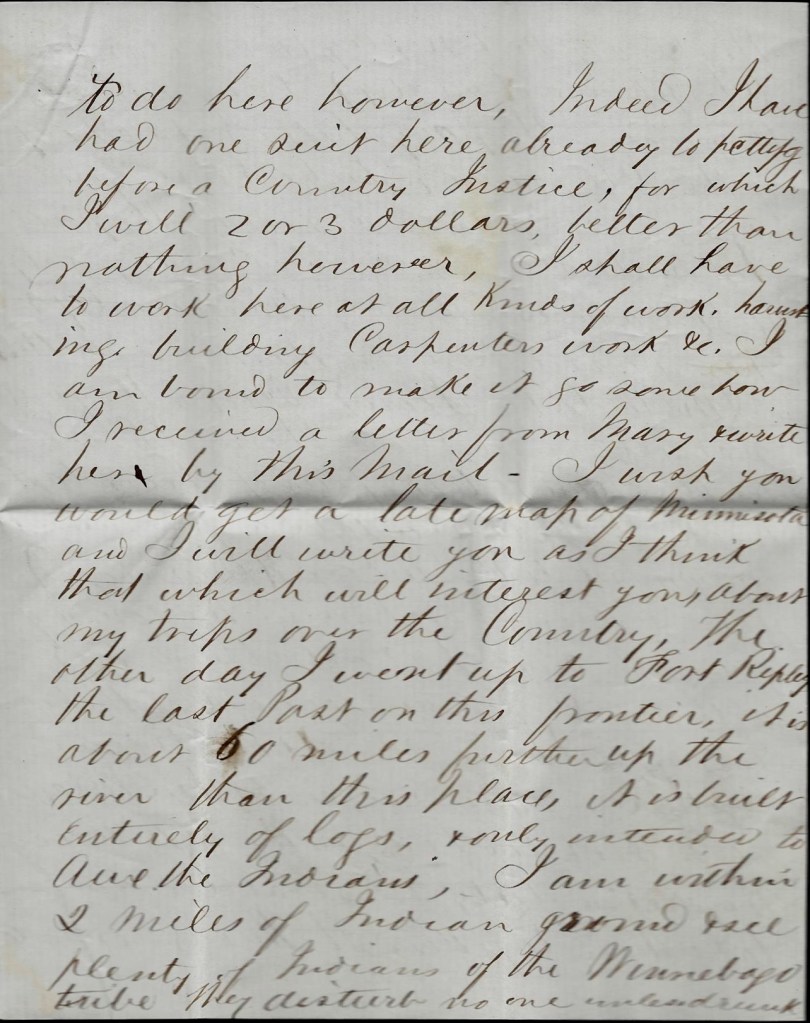 to do here however, Indeed I have
had one suit here already to pettifog
before a Country Justice, for which
I will 2 or 3 dollars, better than
nothing however, I shall have
to work here at all Kinds of work. harvest
ing, building Carpenters work &c. I
am bound to make it go some how
I received a letter from Mary & write
her by this Mail - I wish you
would get a late map of Minnisota
and I will write you as I think
that which will interest you, about
my trips over the Country, The
other day I went up to Fort Ripley
the last Post on this frontier, it is
about 60 miles further up the
river than this place, it is built
Entirely of logs, & only intended to
Awe the Indians, I am within
2 miles of Indian ground & see
plenty of Indians of the Winnebago
tribe They disturb no one unless drunk